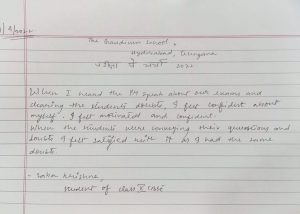 The Gaudium School,
Hyderabad, Telangana
2022
When I heard the PM speak about our exams and
clearing the students doubts, I felt confident about
myself. I felt motivated and confident.
When the students were conveying their questions and
doubts I felt satisfied with it as I had the same
doubts.
Krishna,
student of class X CBSE